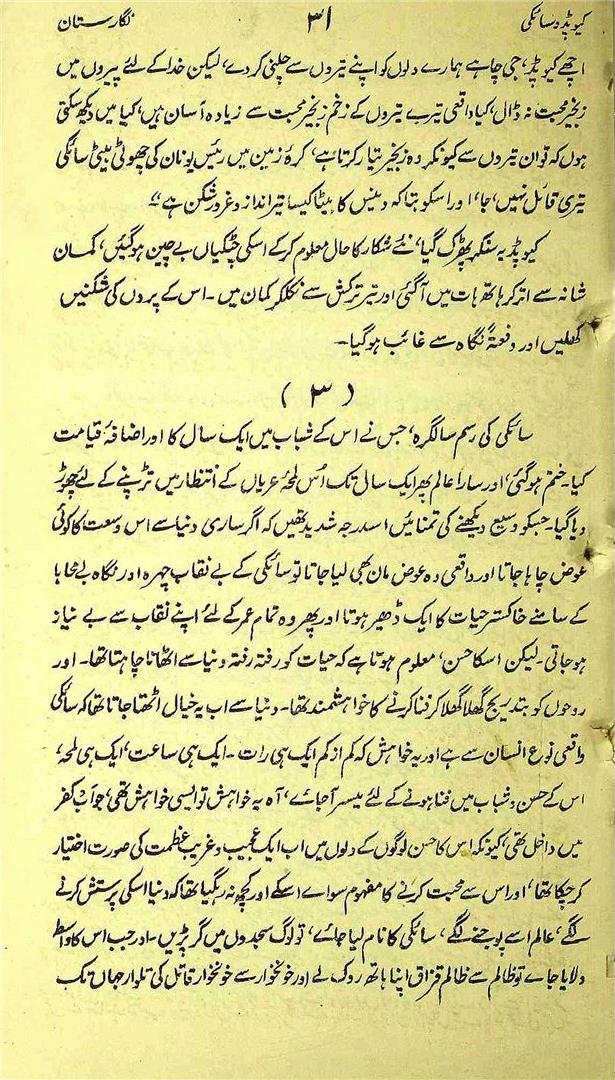 کیوپڈ و سائکی ۳۱ نگارستان
اچھے کیوپڈ، جی چاہے ہمارے دلوں کو اپنے تیروں سے چلنی کردے، لیکن خدا کے لئے پیروں میں
زنجیر محبت نہ ڈال، کیا واقعی تیرے تیروں کے زخم زنجیر محبت سے زیادہ آسان ہیں، کیا میں دیکھ سکتی
ہوں کہ تو ان تیروں سے کیونکر وہ زنجیر تیار کرتا ہے، کرۂ زمین میں رئیس یونان کی چھوٹی بیٹی سائکی
تیری قائل نہیں، جا، اور اسکو بتا کہ وینس کا بیٹا کیسا تیر انداز و غرور شکن ہے"
کیوپڈ یہ سنکر پھڑک گیا، نئے شکار کا حال معلوم کرکے اسکی چٹکیاں بے چین ہوگئیں، کمان
شانہ سے اتر کر ہاتھ میں آگئی اور تیر ترکش سے نکلکر کمان میں۔ اس کے پروں کی شکنیں
کھلیں اور دفعۃً نگاہ سے غائب ہوگیا۔
(۳)
سائکی کی رسم سالگرہ، جس نے اس کے شباب میں ایک سال کا اور اضافۂ قیامت
کیا۔ ختم ہوگئی، اور سارا عالم پھر ایک سال تک اُس لمحۂ عریاں کے انتظار میں تڑپنے کے لئے چھوڑ
دیا گیا۔ جسکو وسیع دیکھنے کی تمنائیں اسدرجہ شدید تھیں کہ اگر ساری دنیا سے اس وسعت کا کوئی
عوض چاہا جاتا اور واقعی وہ عوض مان بھی لیا جاتا تو سائکی کے بے نقاب چہرہ اور نگاہ بے محابا
کے سامنے خاکستر حیات کا ایک ڈھیر ہوتا اور پھر وہ تمام عمر کے لئے اپنے نقاب سے بے نیاز
ہوجاتی۔ لیکن اسکا حسن، معلوم ہوتا ہے کہ حیات کو رفتہ رفتہ دنیا سے اٹھانا چاہتا تھا۔ اور
روحوں کو بتدریج گھلا گھلا کر فنا کرنے کا خواہشمند تھا۔ دنیا سے اب یہ خیال اٹھتا جاتا تھا کہ سائکی
واقعی نوع انسان سے ہے اور یہ خواہش کہ کم از کم ایک ہی رات۔ ایک ہی ساعت، ایک ہی لمحہ،
اس کے حسن و شباب میں فنا ہونے کے لئے میسر آجائے، آہ یہ خواہش تو ایسی خواہش تھی، جو اب کفر
میں داخل تھی، کیونکہ اس کا حسن لوگوں کے دلوں میں اب ایک عجیب و غریب عظمت کی صورت اختیار
کرچکا تھا، اور اس سے محبت کرنے کا مفہوم سواے اسکے اور کچھ نہ رہگیا تھا کہ دنیا اسکی پرستش کرنے
لگے، عالم اسے پوجنے لگے، سائکی کا نام لیا جائے، تو لوگ سجدوں میں گر پڑیں۔ اور جب اس کا واسطہ
دلایا جاے تو ظالم سے ظالم قزاق اپنا ہاتھ روک لے اور خونخوار سے خونخوار قاتل کی تلوار جہاں تک